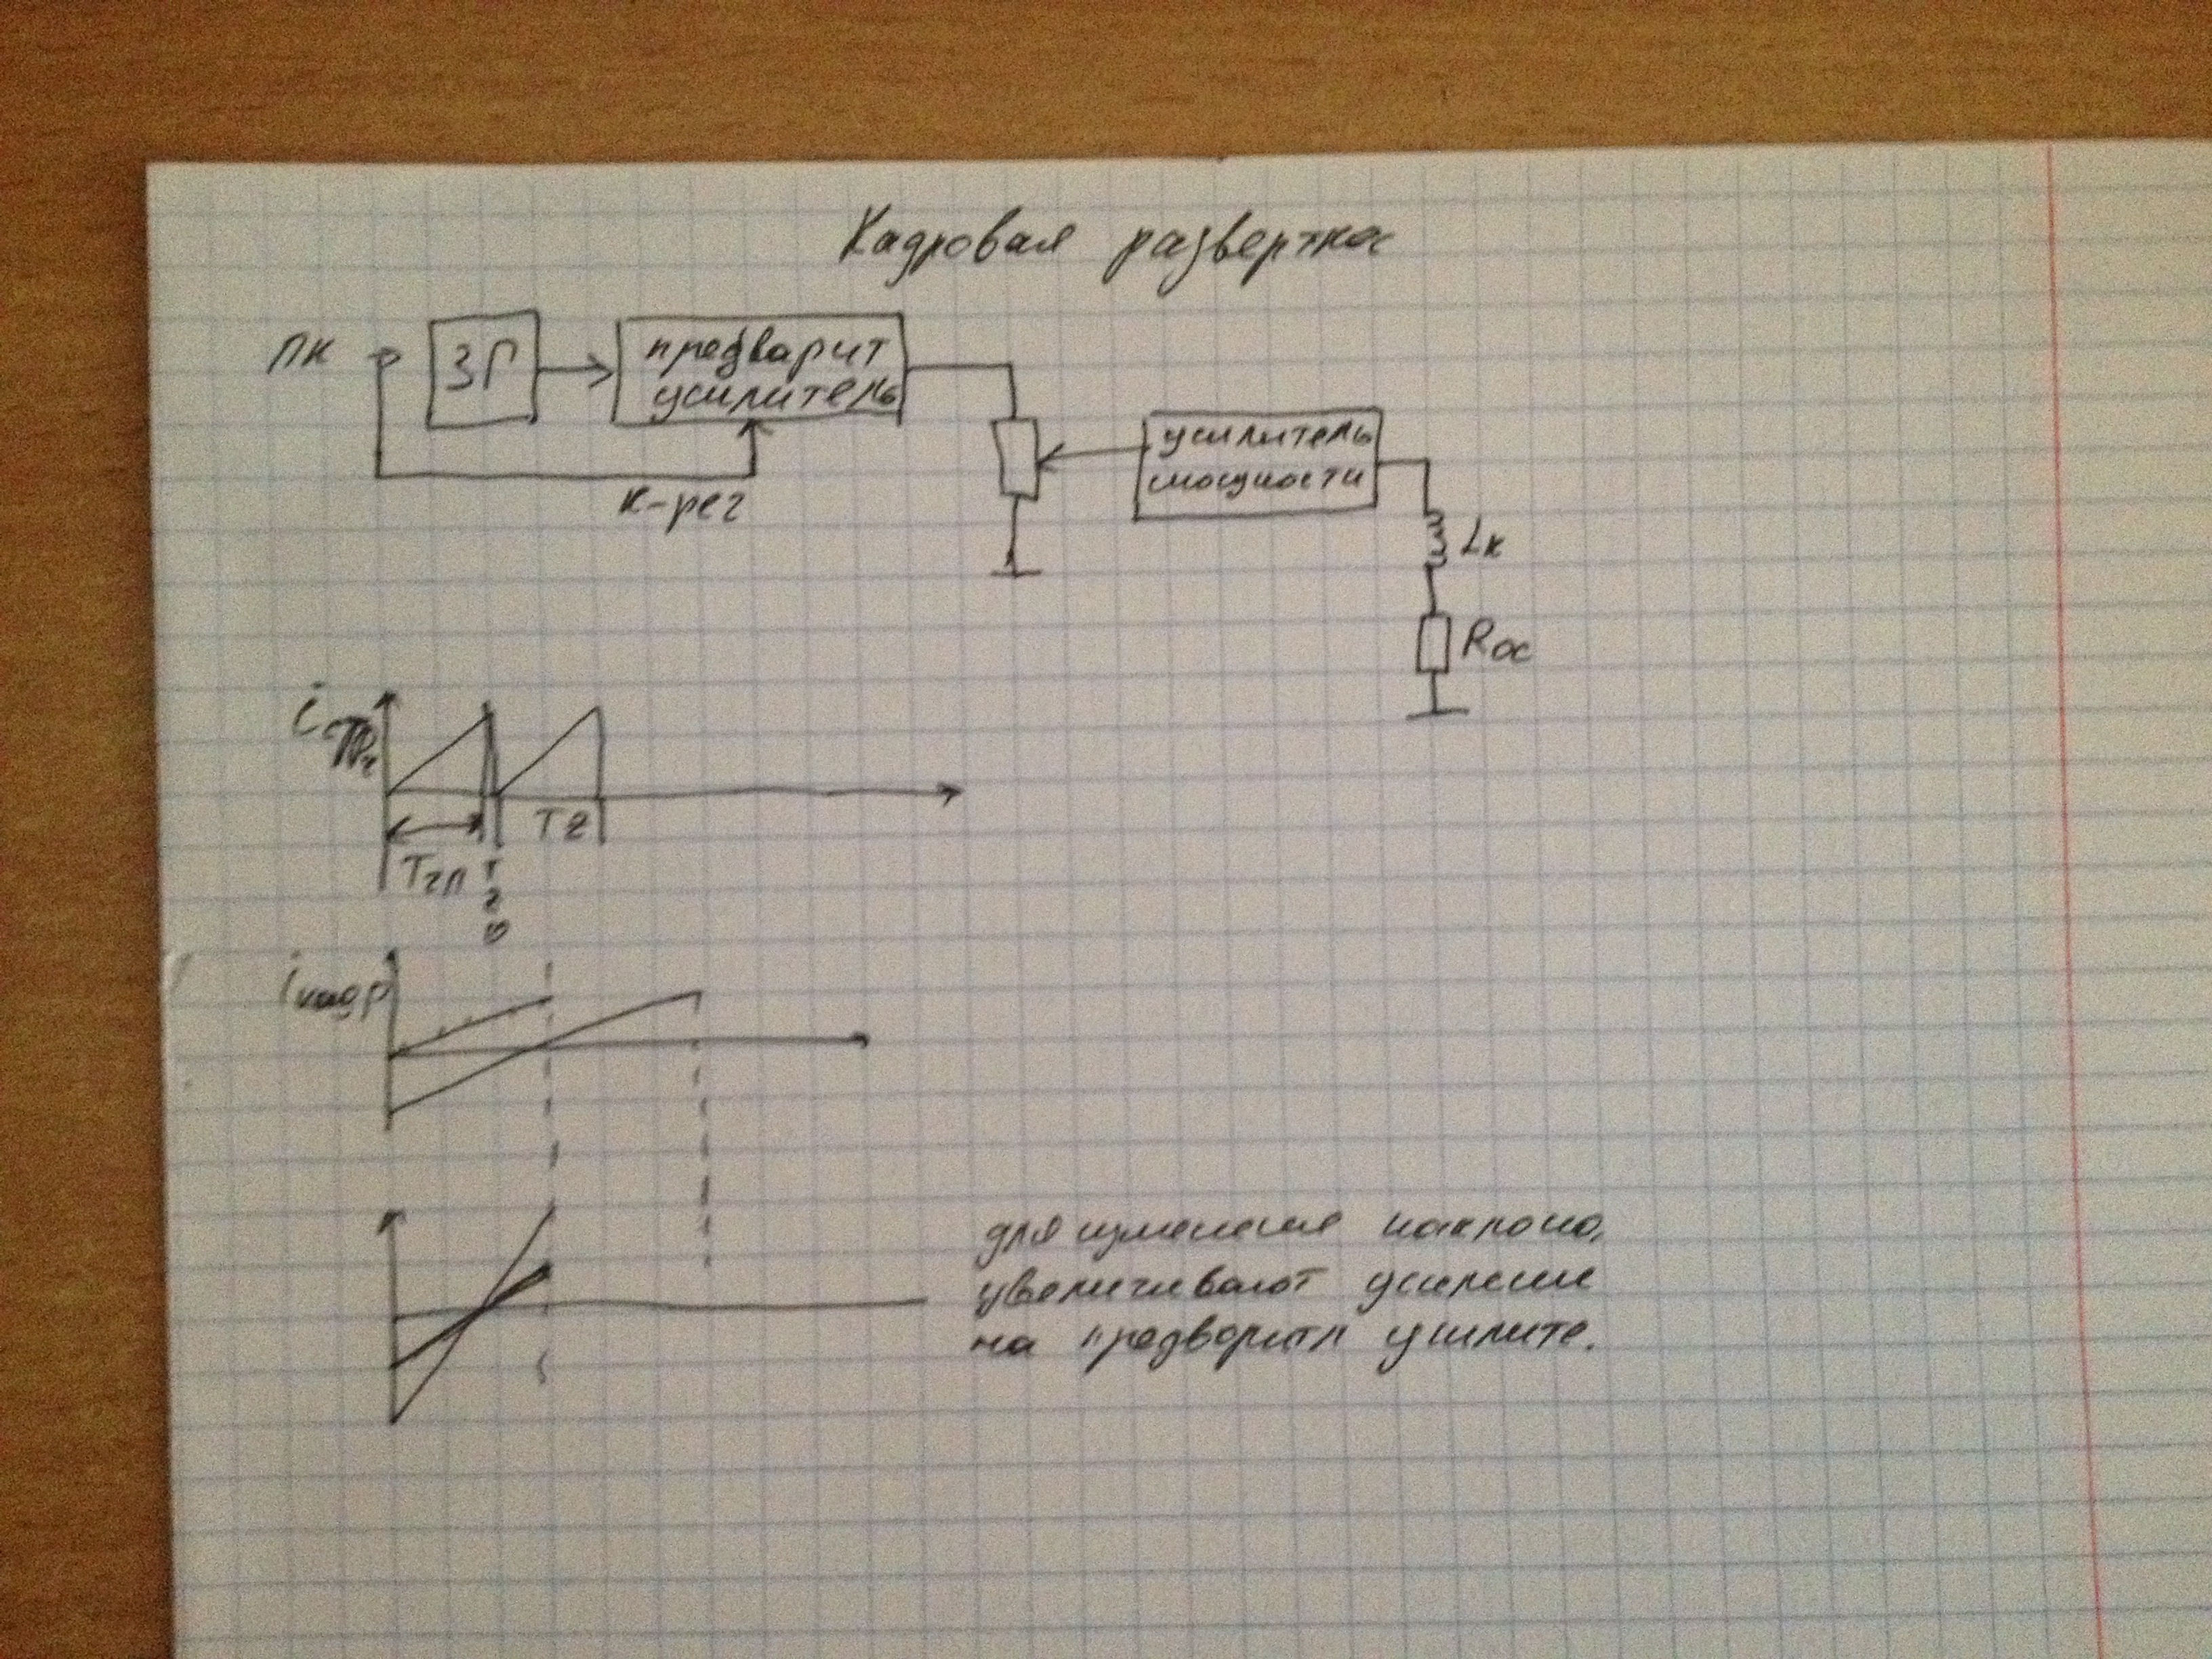 Кадровая развертка
ПК
ЗГ
предварит
усилитель
к-рег
усилитель
мощности
Lк
Rос
i
Tгп
Tго
Tг
iкадр
для изменение наклона,
увеличивают усиление
на предварител усилите.